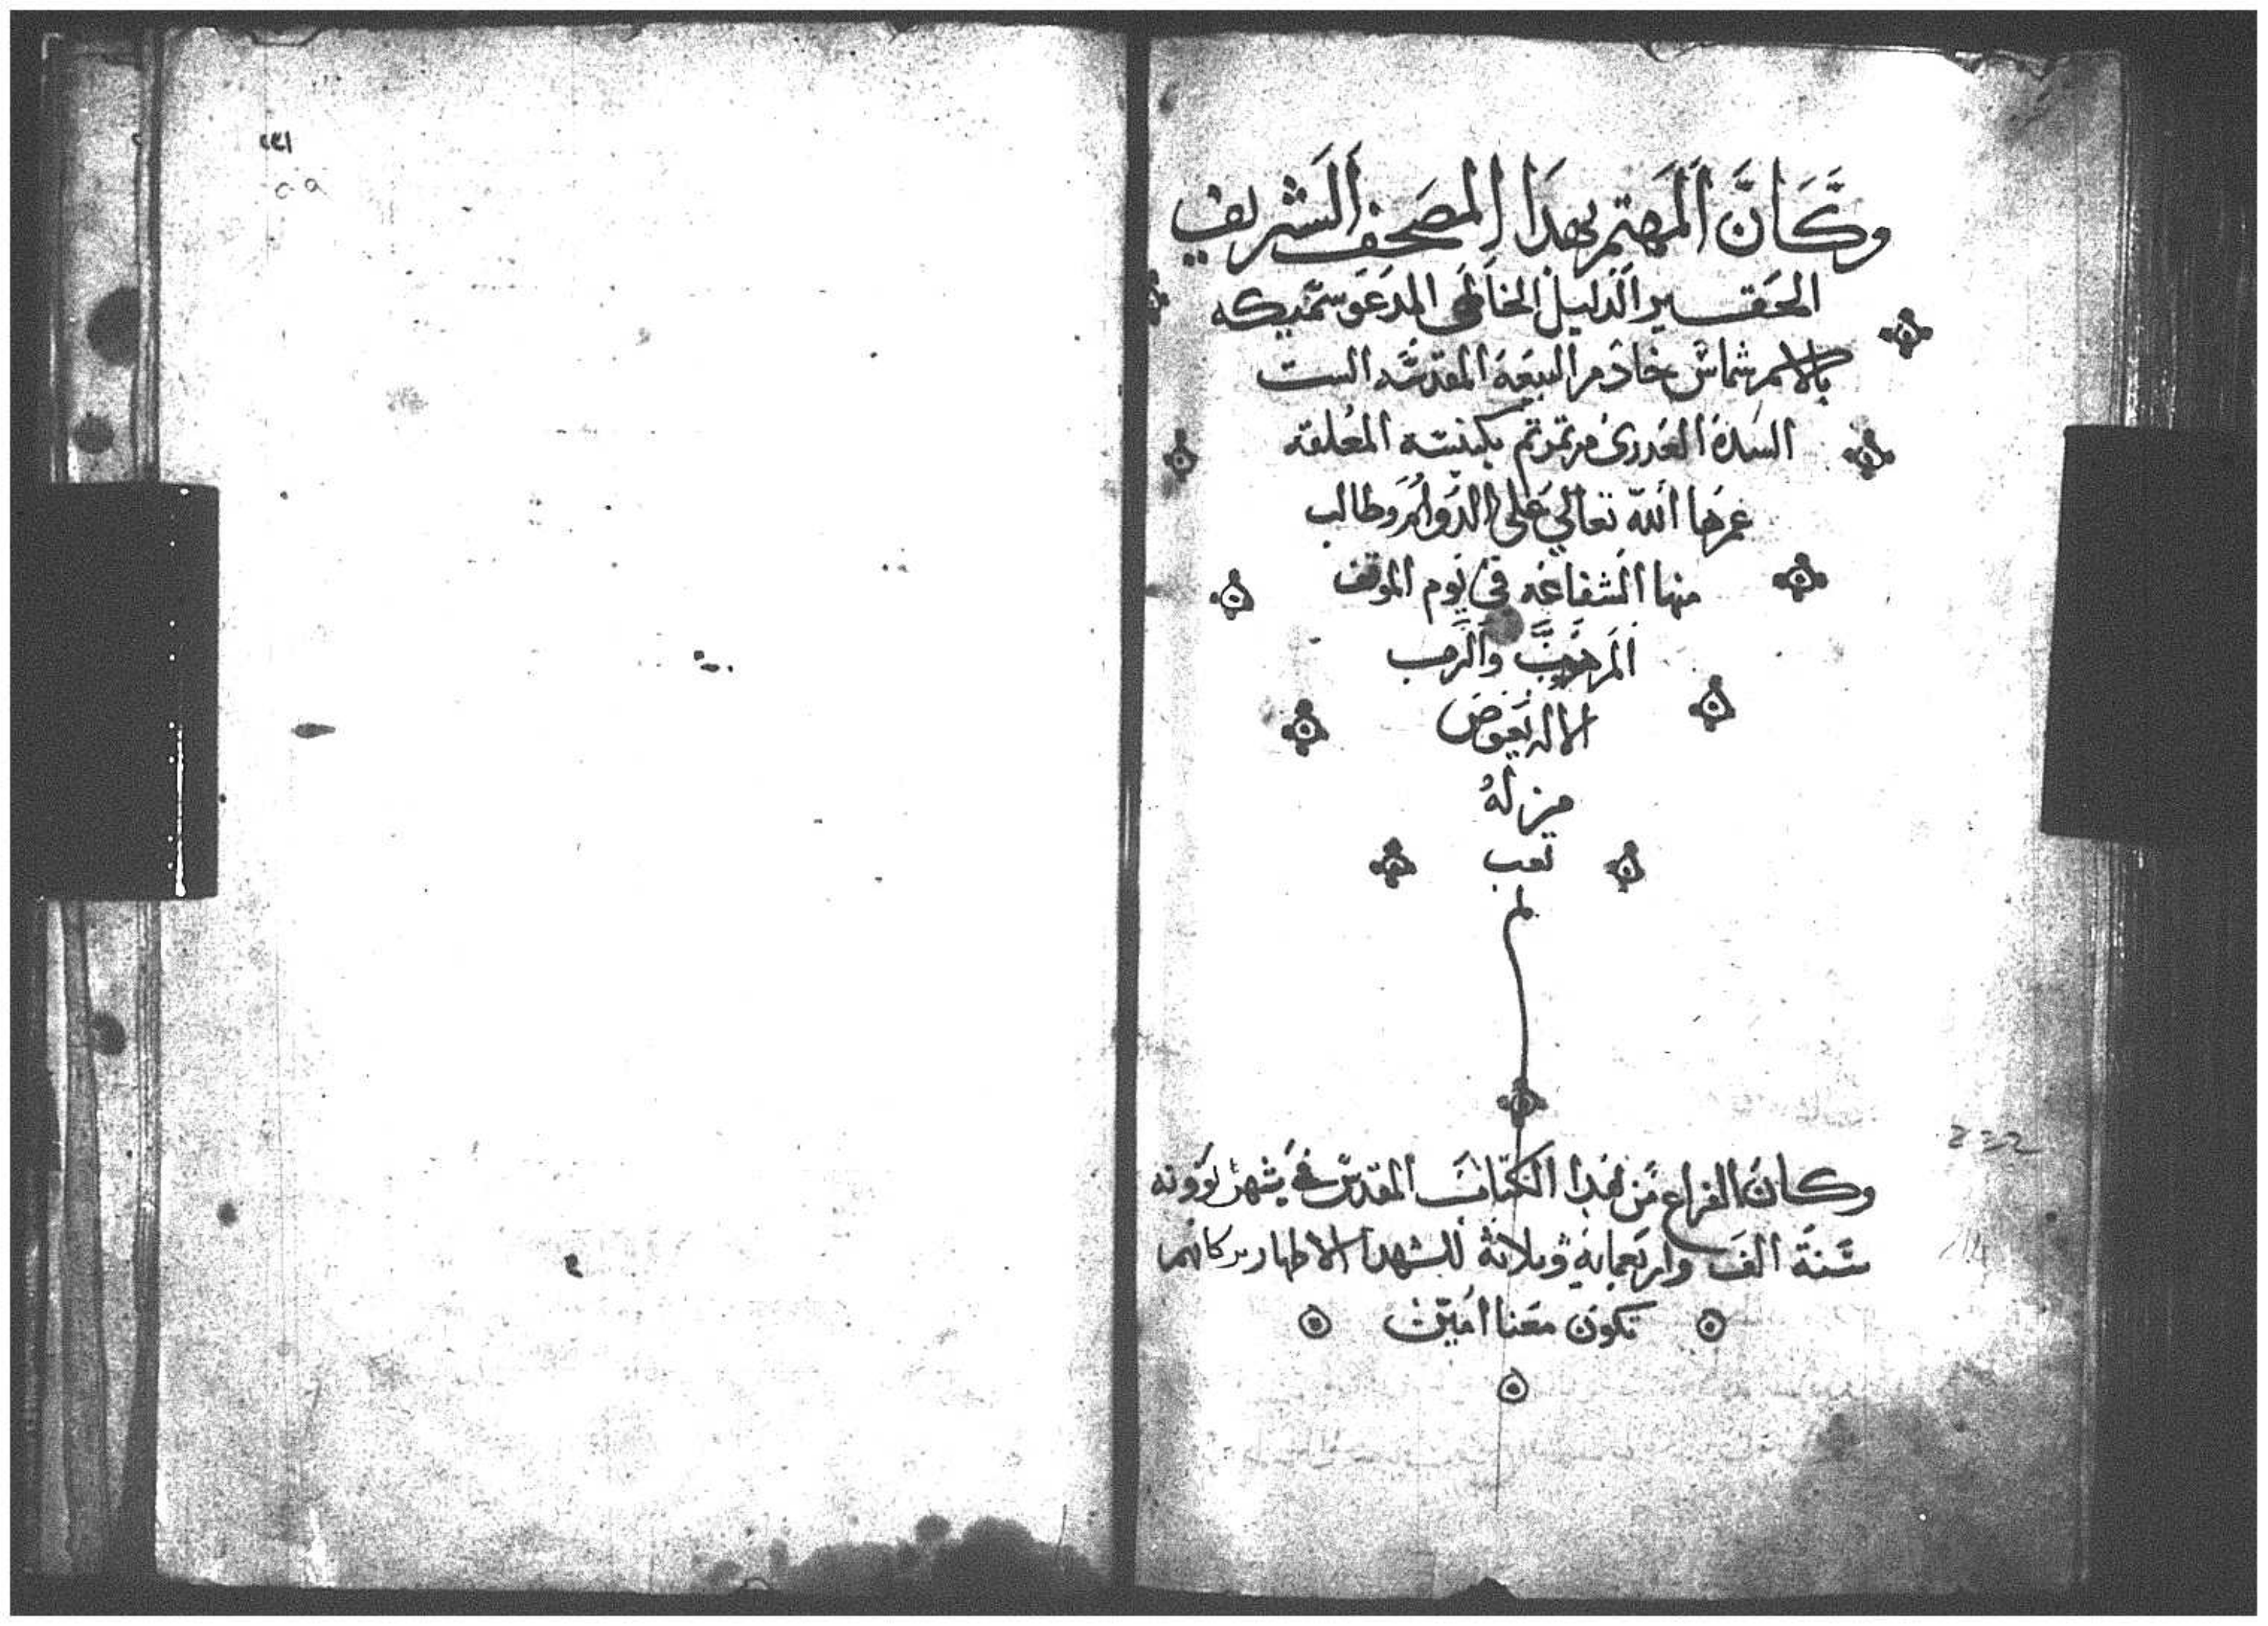 وكان المهتم بهدا المصحف الشريف
الحقير الدليل الخاطي المدعو سمّيكه
بالاسم شماس خادم البيعه المقدسه الست
السدة العدرى مرتمرتم بكنيسته المعلقه
عمرها الله تعالي على الدوام وطالب
منها الشفاعه في يوم الموقف
المرهوب والرب
الاله يعوض
من له
تعب
وكان الفراغ من هدا الكتاب المقدس في شهر بوونه
سنة الف واربعمايه وتلاتة للشهدا الاطهار بركاتهم
تكون معنا امين
٢٣٢